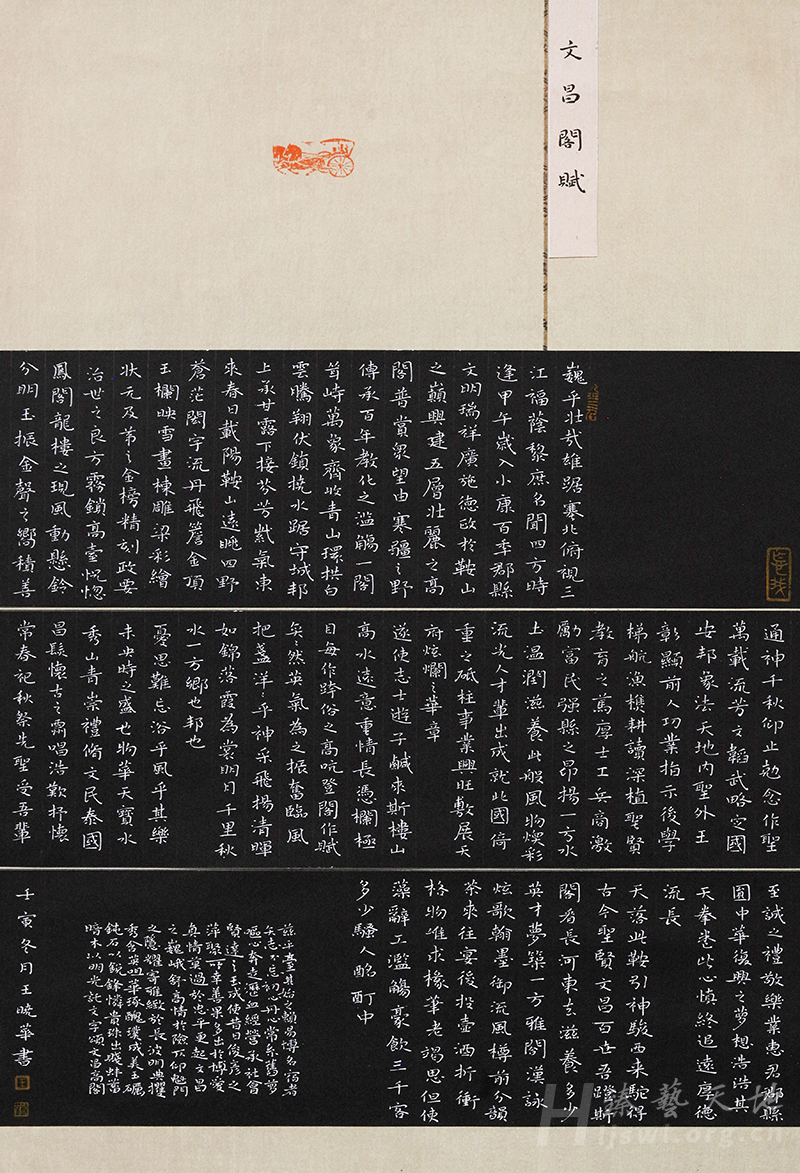 文昌閣賦
巍乎壯哉雄踞寒北俯視三
江福蔭黎庶名聞四方時
逢甲午歲入小康百年郡縣
文明瑞祥廣施德政於鞍山
之巔興建五層壯麗之高
閣普賞衆望由寒疆之野
傳承百年教化之濫觴一閣
聳峙萬象齊收青山環拱白
雲騰翔伏鎖挽水踞守城邦
上承甘露下接芬芳紫氣東
來春日載陽鞍山遠眺四野
蒼茫閎宇流丹飛簷金頂
玉欄映雪畫棟雕梁彩繪
狀元及第之金榜精刻政要
治世之良方霧鎖高臺恍惚
鳳閣龍樓之現風動懸鈴
分明玉振金聲之響積善
通神千秋仰止勉念作聖
萬載流芳文韜武略定國
安邦象法天地內聖外王
彰顯前人功業指示後學
梯航漁樵耕讀深植聖賢
教育之篤厚士工兵商激
勵富民強縣之昂揚一方水
土溫潤滋養此般風物煥彩
流光人才輩出成就此國倚
重之砥柱事業興旺敷展天
府炫爛之華章
遂使志士遊子鹹來斯樓山
高水遠意重情長憑欄極
目每作跨俗之高吭登閣作賦
奐然英氣為之振奮臨風
把盞洋乎神采飛揚清暉
如錦落霞為裳明月千里秋
水一方鄉也邦也
憂思難忘浴乎風乎其樂
未央時之盛也物華天寶水
秀山青崇禮脩文民泰國
昌髮懷古之肅唱浩歎抒懷
常春祀秋祭先聖受吾輩
至誠之禮敬樂業惠君鄰縣
圓中華復興之夢想浩浩其
天拳拳此心慎終追遠厚德
流長
天落此鞍引神駿西來駝得
古今聖賢文昌百世吾證斯
閣看長河東去滋養多少
英才夢築一方雅閣漢詠
炫歌翰墨御流風樽前分韻
茶來往宴後投壺酒折衝
格物惟求椽筆老渴思但使
藻辭工濫觴豪飲三千客
多少騷人酩酊中
真情寞過於忠平更起文昌
之巍峨舒高情於險下仰魁門
之隱耀寄雅緻於長波明典擢
秀含英咀華琢醜璞成美玉礪
鈍石以
暗木以明光託文字頌文昌高閣
壬寅冬月王曉華書
臻藝天地
Hljswl.org.cn